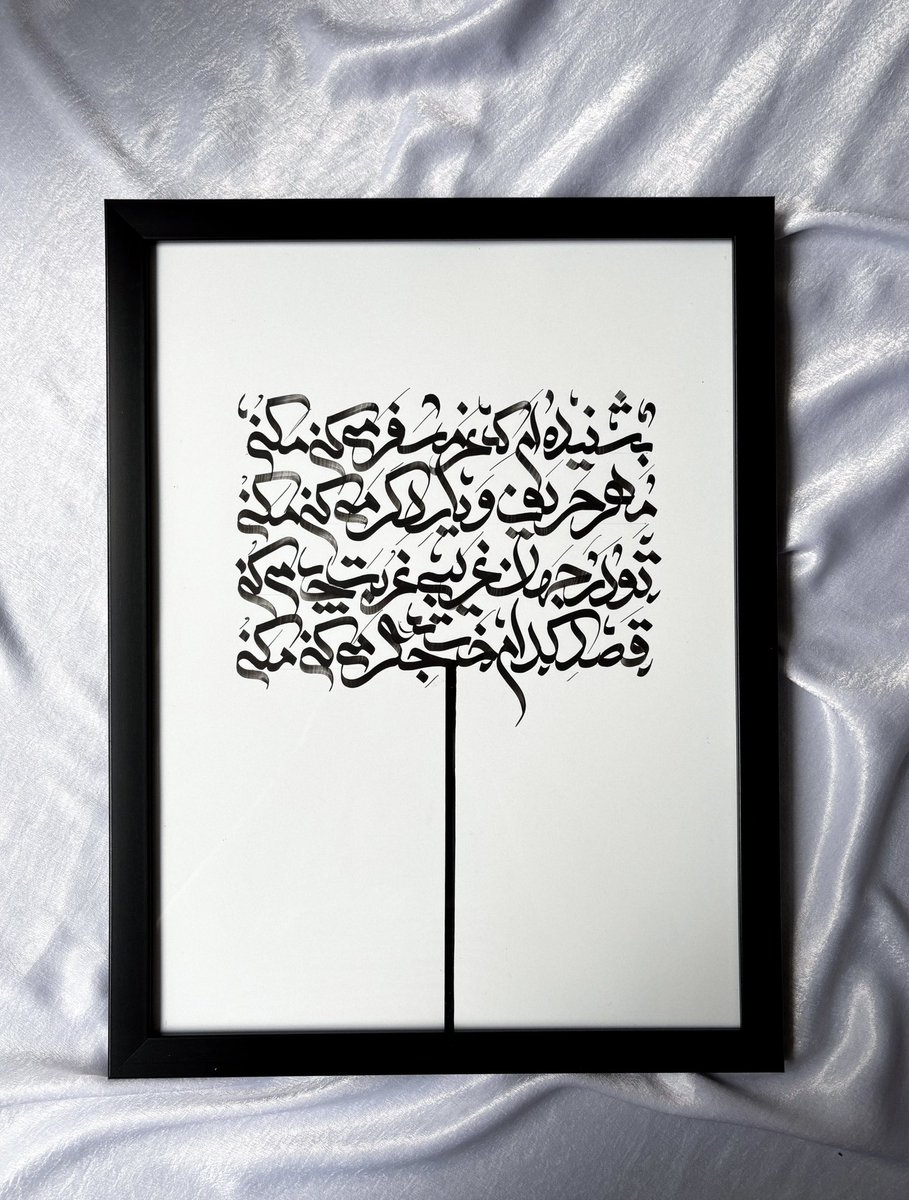 بشنیده‌ام که عزم سفر می‌کنی مکن
مهر حریف و یار دگر می‌کنی مکن
تو در جهان غریبی غربت چه می‌کنی
قصد کدام خسته جگر می‌کنی مکن